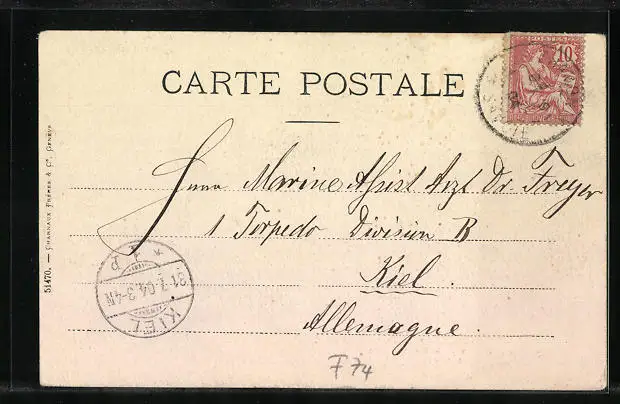 CARTE POSTALE
POSTES
10
Herrn Marine Assist Arzt Dr. Freyer
1 Torpedo Division B
Kiel.
Allemagne.
KIEL
31.7.04.3-4N
F 74
51470. — CHARNAUX FRÈRES & Cº, GENÈVE